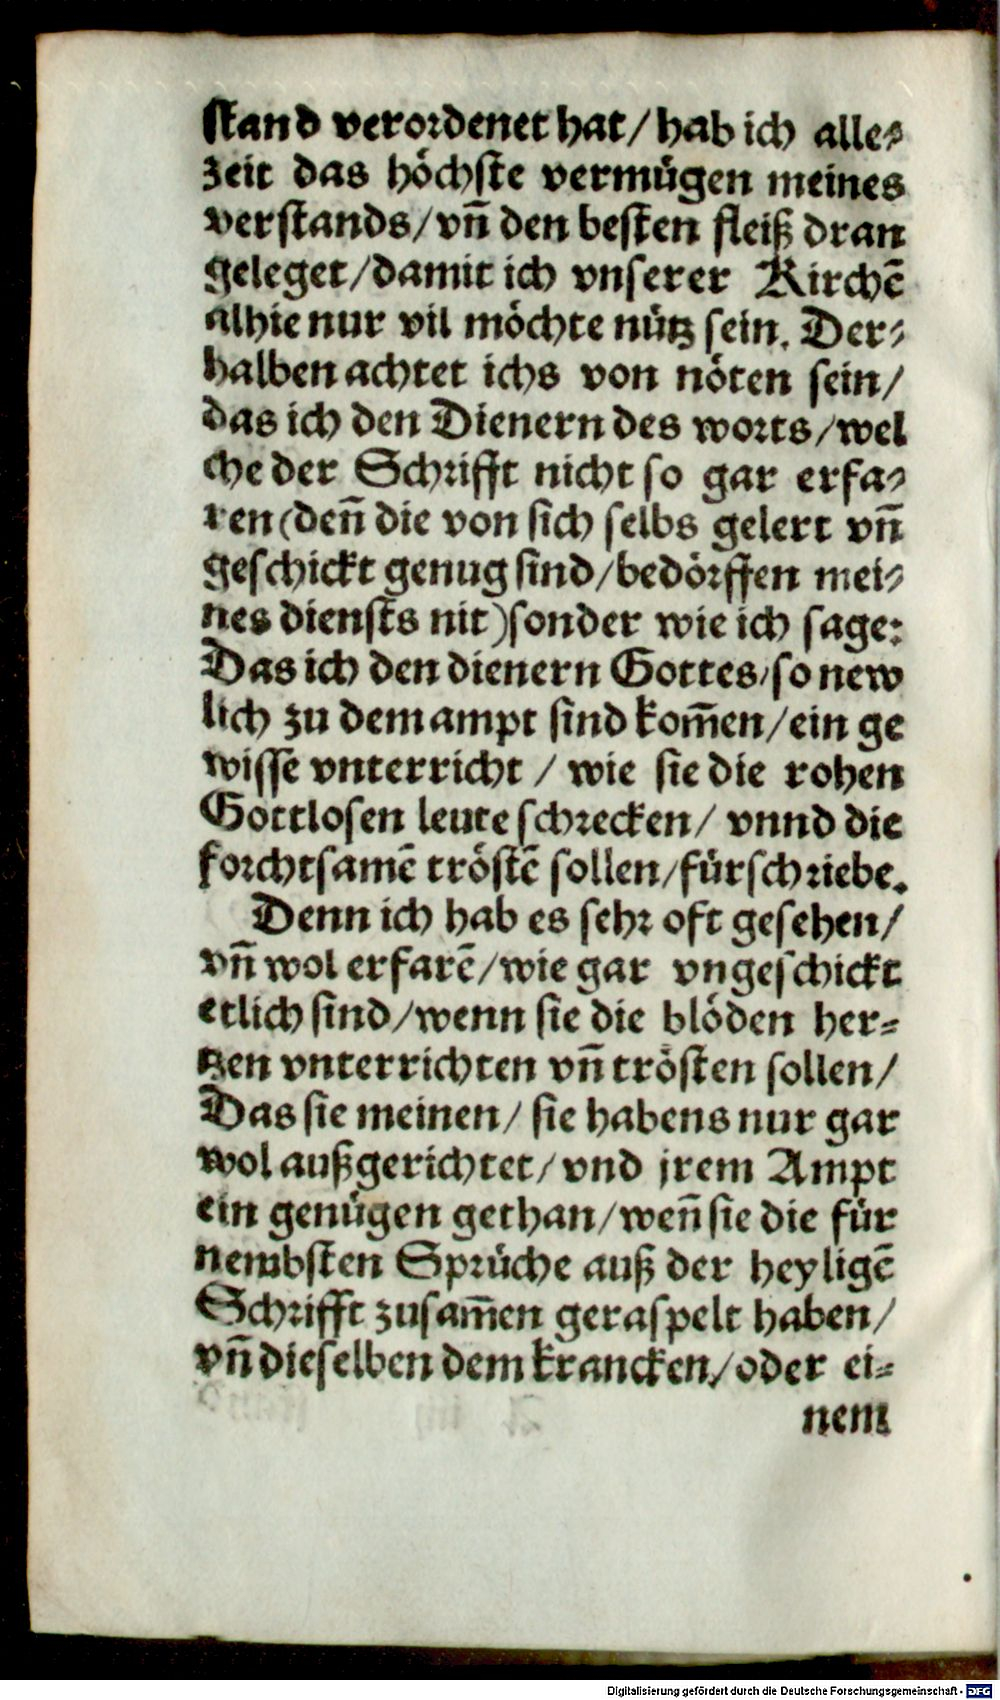 ſtand verordenet hat/ hab ich alle⸗
zeit das höchſte vermügen meines
verſtands/ vñ den beſten fleiß dran
geleget/ damit ich vnſerer Kirchē
alhie nur vil möchte nütz ſein. Der⸗
halben achtet ichs von nöten ſein/
das ich den Dienern des worts/ wel
che der Schrifft nicht ſo gar erfa⸗
ren (deñ die von ſich ſelbs gelert vñ
geſchickt genug ſind/ bedörffen mei⸗
nes dienſts nit) ſonder wie ich ſage:
Das ich den dienern Gottes/ ſo new
lich zu dem ampt ſind kom̄en/ ein ge
wiſſe vnterricht / wie ſie die rohen
Gottloſen leute ſchrecken/ vnnd die
forchtſamē tröſtē ſollen/ fürſchriebe.
Denn ich hab es ſehr oft geſehen/
vñ wol erfarē/ wie gar vngeſchickt
etlich ſind/ wenn ſie die blöden her⸗
tzen vnterrichten vñ tröſten ſollen/
Das ſie meinen/ ſie habens nur gar
wol außgerichtet/ vnd jrem Ampt
ein genügen gethan/ weñ ſie die für
nembſten Sprüche auß der heyligē
Schrifft zuſam̄en geraſpelt haben/
vñ dieſelben dem krancken/ oder ei⸗
nem
Digitalisierung gefördert durch die Deutsche Forschungsgemeinschaft - DFG